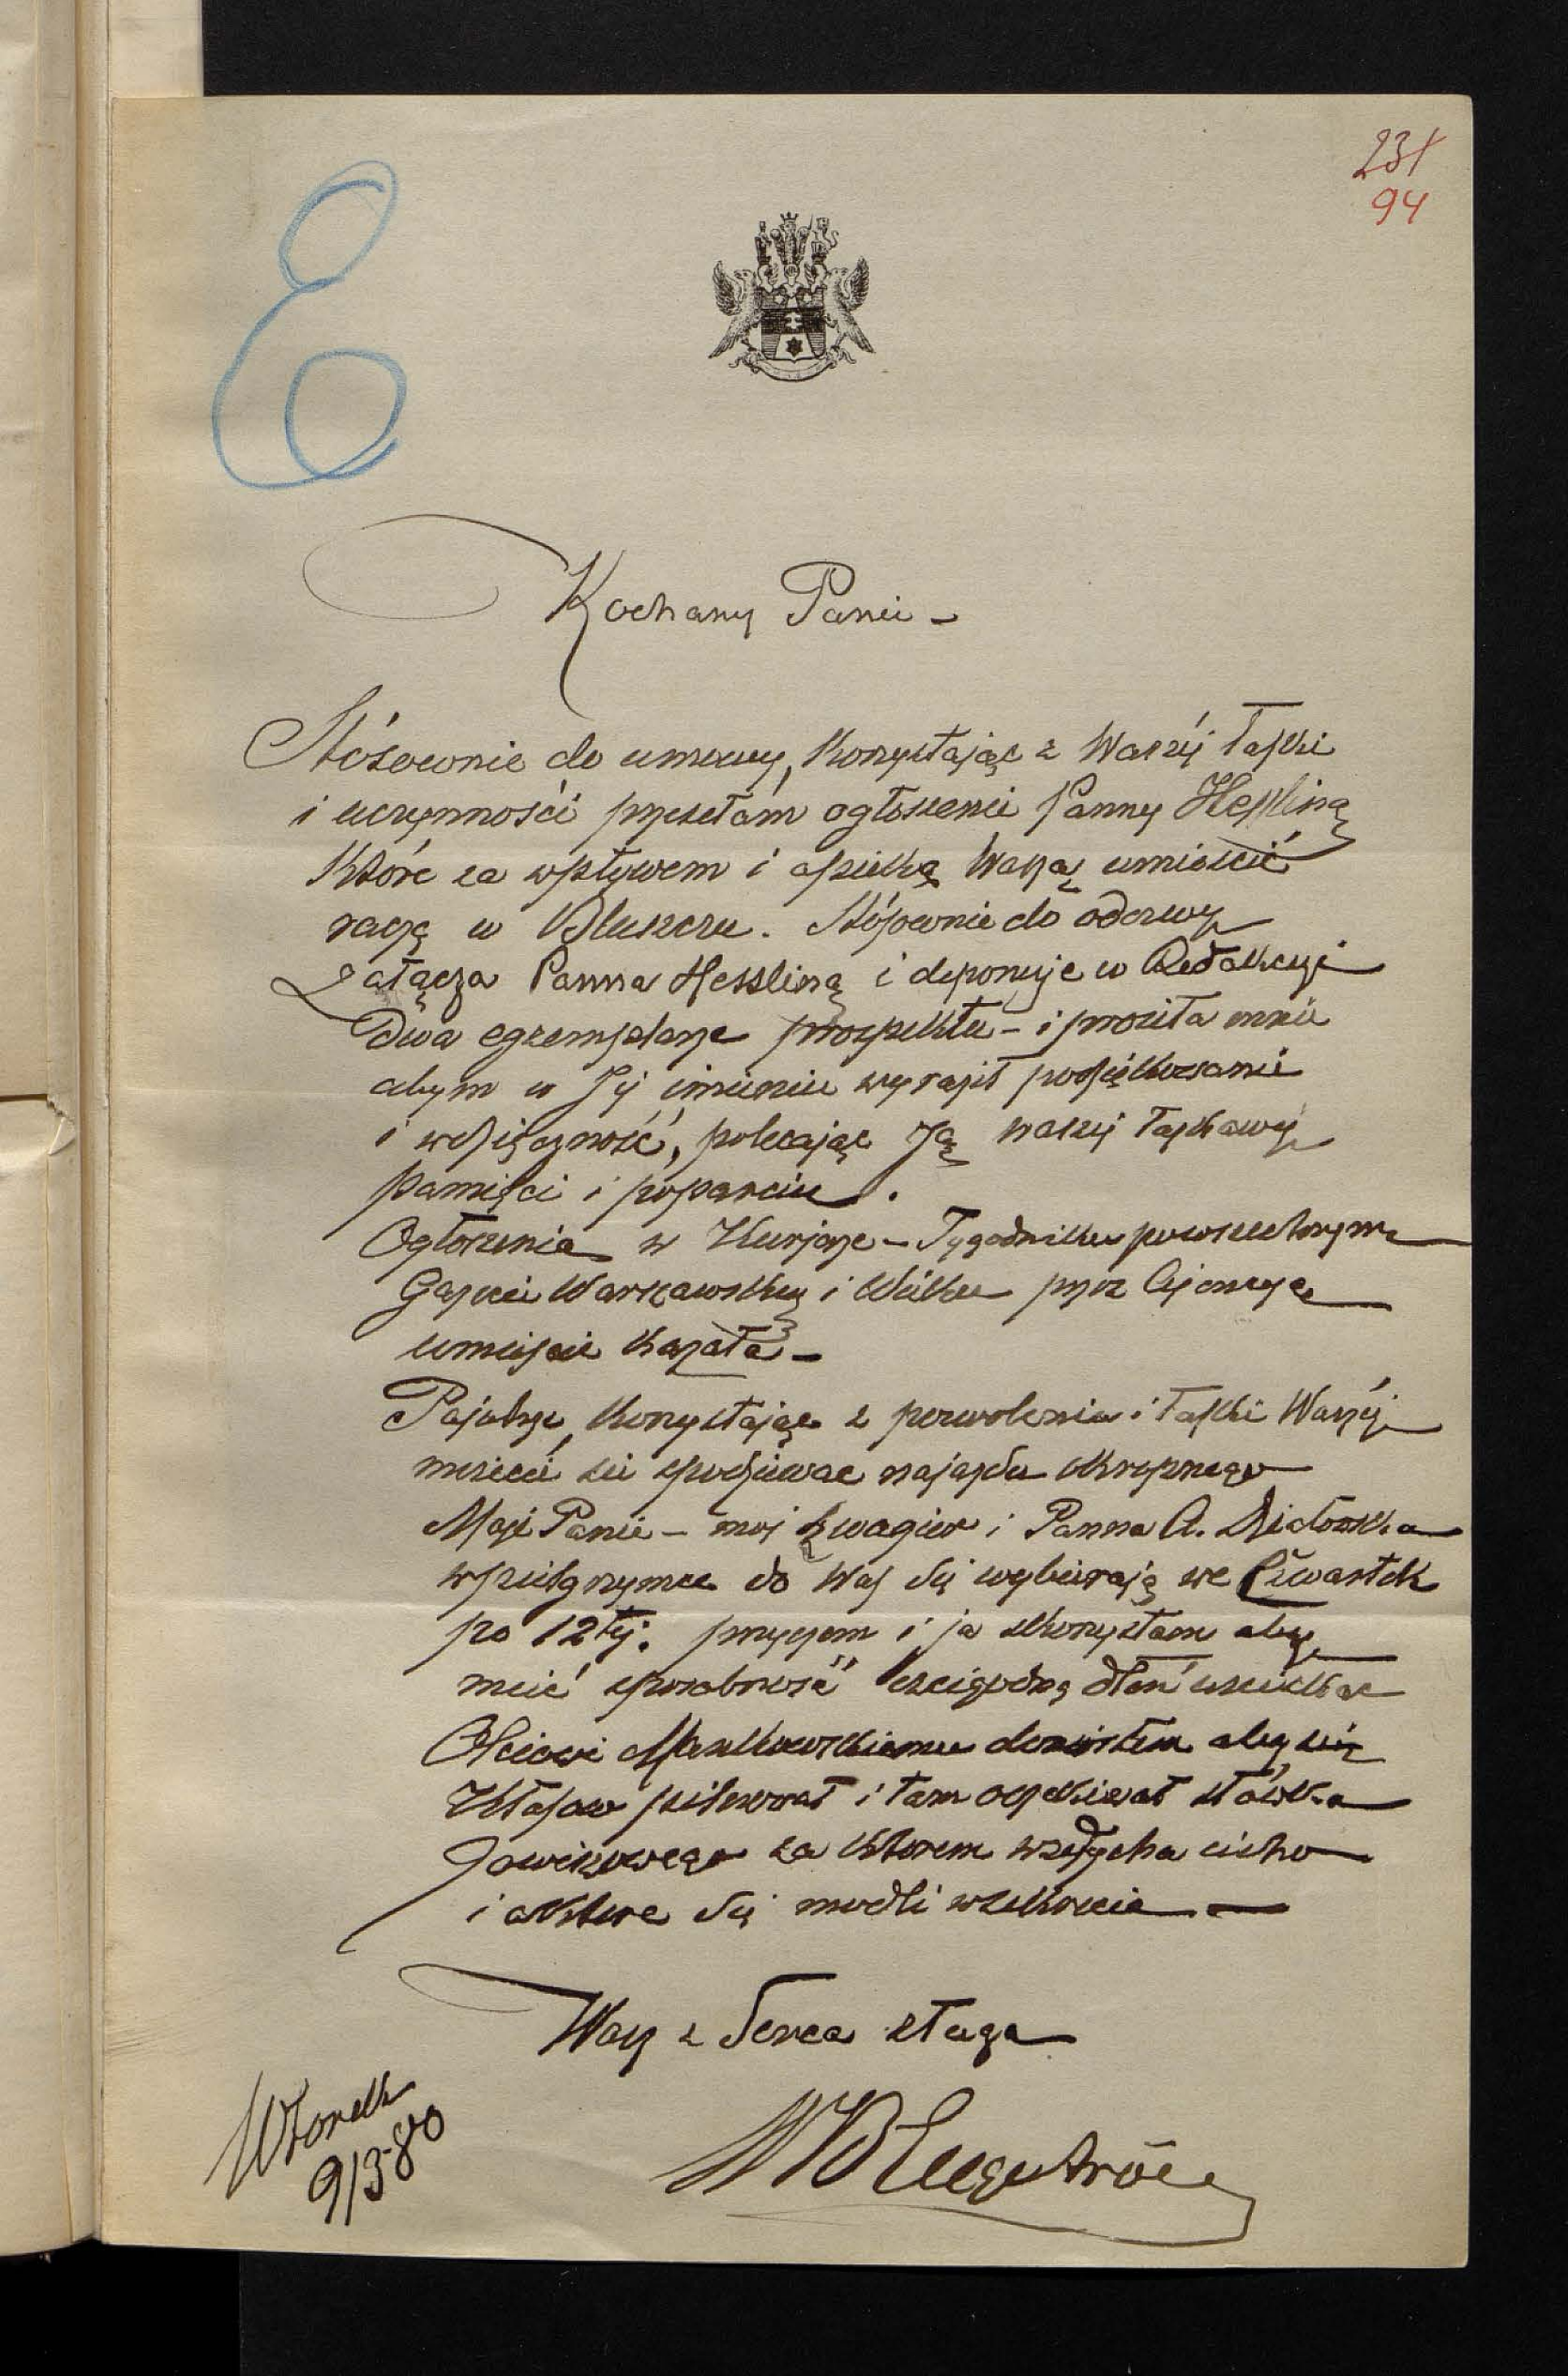 231
94
E
Kochany Panie -
Stósownie do umowy, korzystając z Waszéj łaski
i uczynności przesełam ogłoszenie Panny Hessling
które za wpływem i opieką Waszą umieścić
raczą w Bluszczu. Stósownie do odezwy
załącza Panna Hessling i deponuje w Redakcyi
Dwa egzemplarze prospektu - i prosiła mnie
abym w Jéj imieniu wyraził podziękowanie
i wdzięczność, polecając Ją naszéj łaskawéj
pamięci i poparciu.
Ogłoszenia w Kurjerze - Tygodniku powszechnym
Gazecie Warszawskiej i Wieku przez Ajencye
umieścić kazała -
Pojutrze, korzystając z pozwolenia i łaski Waszéj
musicie się spodziewać najazdu okropnego
Moja Panie - moj szwagier i Panna A.
w pielgrzymce do Was się wybierają we Czwartek
po 12téj. przyczem i ja skorzystam aby
mieć sposobność czcigodną dłoń uściskać
Ojcowi doniosłem aby się
pilnował i tam oczekiwał słówka
za ktorem wzdycha cicho
i o ktore się modli w skrycie -
Wasz z serca sługa
WBEngeström
Wtorek
9/3 80